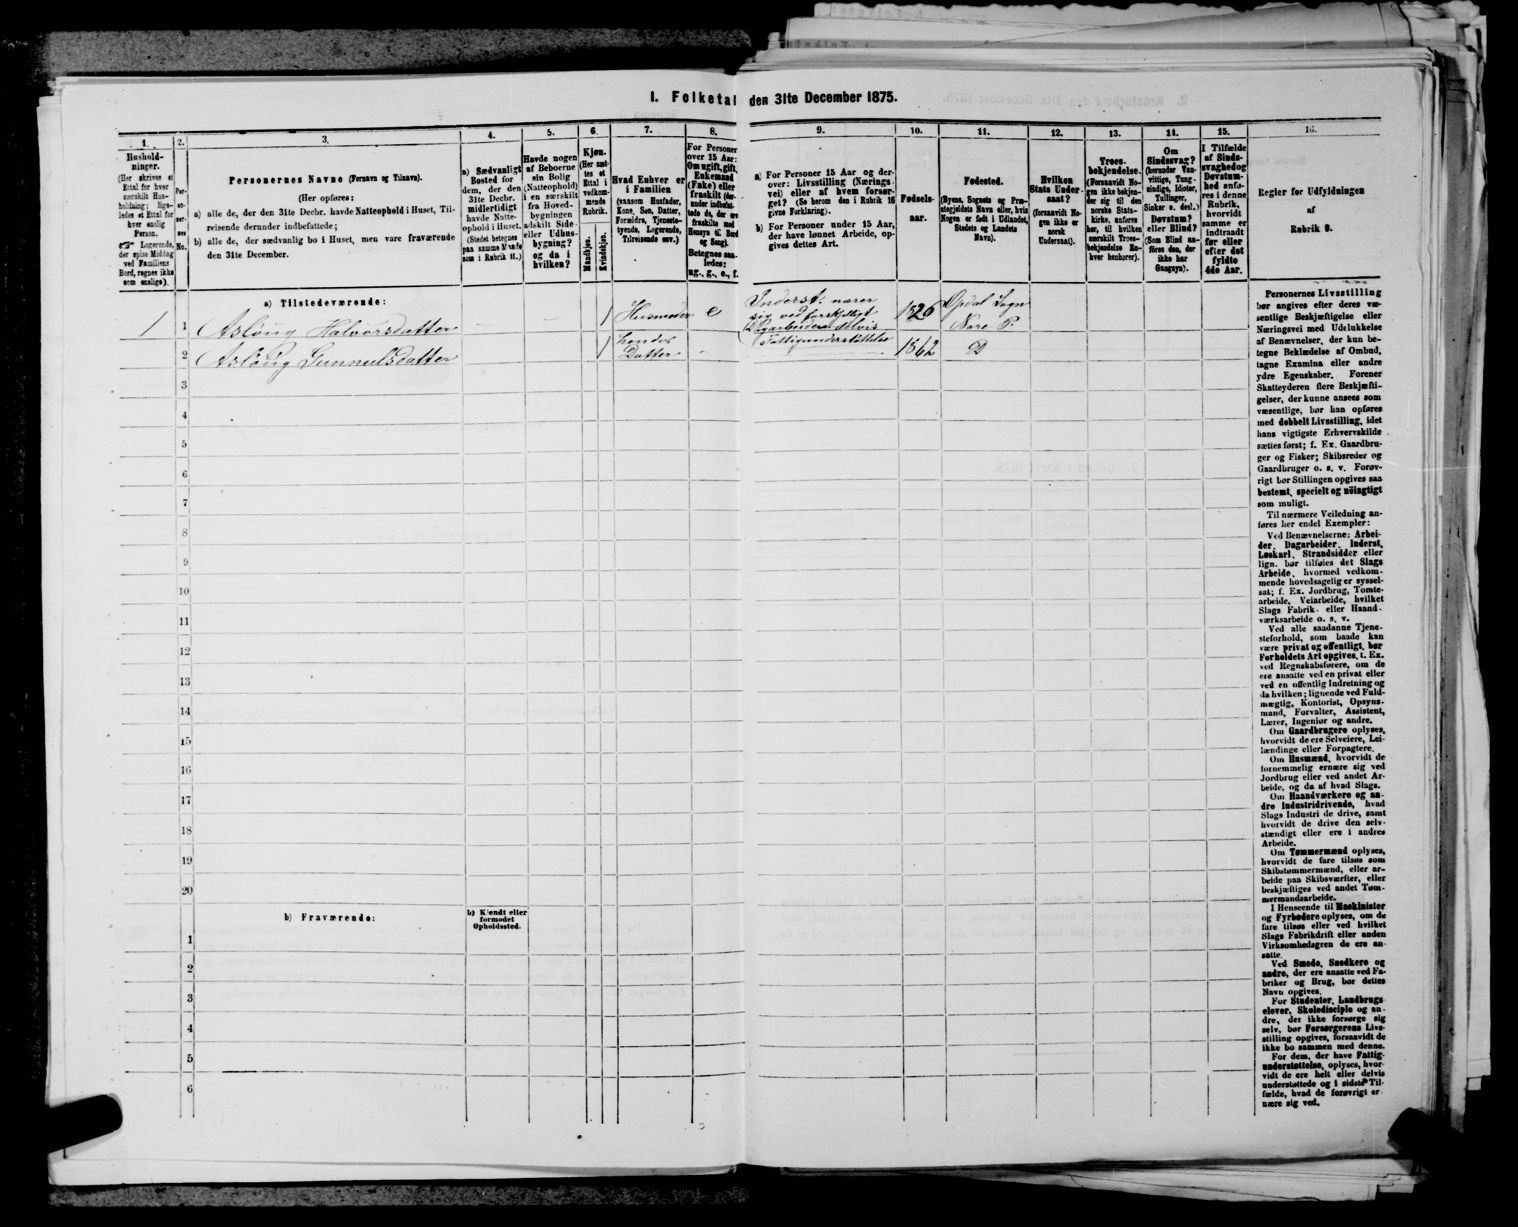 I. Folketal den 31te December 1875.
1.
Hushold-
ninger.
(Her skrives et
Ettal for hver
særskilt Hus-
holdning; lige-
ledes et Ettal for
hver enslig
Person.
☞ Logerende,
der spise Middag
ved Familiens
Bord, regnes ikke
som enslige).
2.
Per-
so-
ner-
nes
No.
3.
Personernes Navne (Fornavn og Tilnavn).
(Her opføres:
a) alle de, der den 31te Decbr. havde Natteophold i Huset, Til-
reisende derunder indbefattede;
b) alle de, der sædvanlig bo i Huset, men vare fraværende
den 31te December.
4.
a) Sædvanligt
Bosted for
dem, der den
31te Decbr.
midlertidigt
havde Natte-
ophold i Huset.
(Stedet betegnes
paa samme Maade
som i Rubrik 11.)
5.
Havde nogen
af Beboerne
sin Bolig
(Natteophold)
i en særskilt
fra Hoved-
bygningen
adskilt Side-
eller Udhus-
bygning?
og da i
hvilken?
6.
Kjøn.
(Her sæt-
tes et
Ettal i
vedkom-
mende
Rubrik.
Mandkjøn.
Kvindekjøn.
7.
Hvad Enhver er
i Familien
(saasom Husfader,
Kone, Søn, Datter,
Forældre, Tjeneste-
tyende, Logerende,
Tilreisende osv.)
8.
For Personer
over 15 Aar:
Om ugift, gift,
Enkemand
(Enke) eller
fraskilt (der-
under indbefat-
tede de, der ere
fraskilte med
Hensyn til Bord
og Seng).
Betegnes saa-
ledes:
ug., g., e., f.
9.
a) For Personer 15 Aar og der-
over: Livsstilling (Nærings-
vei) eller af hvem forsør-
get? (Se herom den i Rubrik 16
givne Forklaring).
b) For Personer under 15 Aar,
der have lønnet Arbeide, op-
gives dettes Art.
10.
Fødsels-
aar.
11.
Fødested.
(Byens, Sognets og Præ-
stegjeldets Navn eller, hvis
Nogen er født i Udlandet,
Stedets og Landets
Navn).
12.
Hvilken
Stats Under-
saat?
(forsaavidt No-
gen ikke er
norsk
Undersaat).
13.
Troes-
bekjendelse.
(Forsaavidt No-
gen ikke bekjen-
der sig til den
norske Stats-
kirke, anføres
her, til hvilken
særskilt Troes-
bekjendelse En-
hver henhører).
14.
Om
Sindssvag?
(herunder Van-
vittige, Tung-
sindige, Idioter,
Tullinger,
Sinker o. desl.)
Døvstum?
eller Blind?
(Som Blind an-
føres den, der
ikke har
Gangsyn).
15.
I Tilfælde
af Sinds-
svaghed og
Døvstum-
hed anfø-
res i denne
Rubrik,
hvorvidt
samme er
indtraadt
før eller
efter det
fyldte
4de Aar.
16.
Regler for Udfyldningen
af
Rubrik 9.
a) Tilstedeværende:
1 1 Aslöug Halvorsdatter 1 Husmoder e Inderst: nærer sig ved forskjelligt Dagarbeide delvis Fattigunderstöttelse 1826 Opdal Sogn Nore P:
2 Aslöug Gunnulsdatter 1 hendes Datter 1862 D
3
4
5
6
7
8
9
10
11
12
13
14
15
16
17
18
19
20
b) Fraværende:
b) Kjendt eller
formodet
Opholdssted.
1
2
3
4
5
6
Personernes Livsstilling
bør angives efter deres væ-
sentlige Beskjæftigelse eller
Næringsvei med Udelukkelse
af Benævnelser, der kun be-
tegne Beklædelse af Ombud,
tagne Examina eller andre
ydre Egenskaber. Forener
Skatteyderen flere Beskjæfti-
gelser, der kunne ansees som
væsentlige, bør han opføres
med dobbelt Livsstilling, idet
hans vigtigste Erhvervskilde
sættes først; f. Ex. Gaardbru-
ger og Fisker; Skibsreder og
Gaardbruger o. s. v. Forøv-
rigt bør Stillingen opgives saa
bestemt, specielt og nöiagtigt
som muligt.
Til nærmere Veiledning an-
føres her endel Exempler:
Ved Benævnelserne: Arbei-
der, Dagarbeider, Inderst,
Løskarl, Strandsidder eller
lign. bør tilføies det Slags
Arbeide, hvormed vedkom-
mende hovedsagelig er syssel-
sat; f. Ex. Jordbrug, Tomte-
arbeide, Veiarbeide, hvilket
Slags Fabrik- eller Haand-
værksarbeide o. s. v.
Ved alle saadanne Tjene-
steforhold, som baade kan
være privat og offentligt, bør
Forholdets Art opgives, t. Ex.
ved Regnskabsførere, om de
ere ansatte ved en privat eller
ved en offentlig Indretning og
da hvilken; lignende ved Fuld-
mægtig, Kontorist, Opsyns-
mand, Forvalter, Assistent,
Lærer, Ingeniør og andre.
Om Gaardbrugere oplyses,
hvorvidt de ere Selveiere, Lei-
lændinge eller Forpagtere.
Om Husmænd, hvorvidt de
fornemmelig ernære sig ved
Jordbrug eller ved andet Ar-
beide, og da af hvad Slags.
Om Haandværkere og an-
dre Industridrivende, hvad
Slags Industri de drive, samt
hvorvidt de drive den selv-
stændigt eller ere i andres
Arbeide.
Om Tømmermænd oplyses,
hvorvidt de fare tilsøs som
Skibstømmermænd, eller ar-
beide paa Skibsværfter, eller
beskjæftiges ved andet Tøm-
mermandsarbeide.
I Henseende til Maskinister
og Fyrbødere oplyses, om de
fare tilsøs eller ved hvilket
Slags Fabrikdrift eller anden
Virksomhedsgren de ere an-
satte.
Ved Smede, Snedkere og
andre, der ere ansatte ved Fa-
briker og Brug, bør dettes
Navn opgives.
For Studenter, Landbrugs-
elever, Skoledisciple og an-
dre, der ikke forsørge sig
selv, bør Forsørgerens Livs-
stilling opgives, forsaavidt de
ikke bo sammen med denne.
For dem, der have Fattig-
understøttelse, oplyses, hvor-
vidt de ere helt eller delvis
understøttede og i sidste Til-
fælde, hvad de forøvrigt er-
nære sig ved.